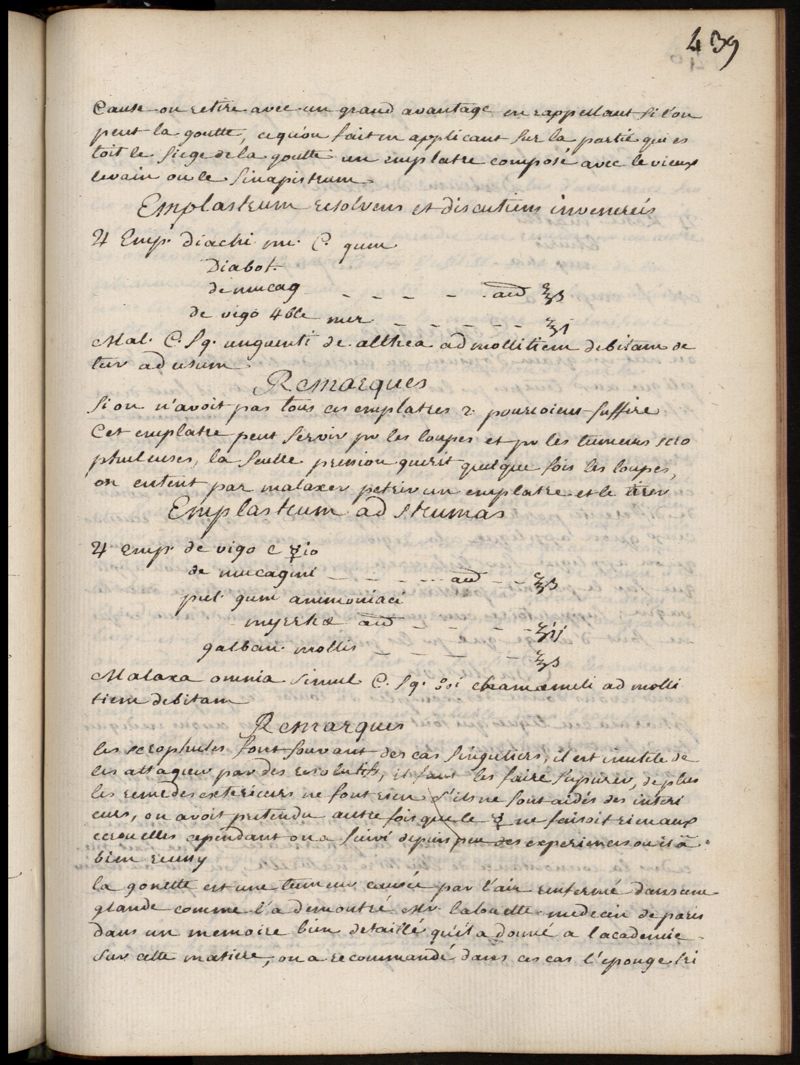 439
Cause on retire avec un grand avantage en rappellant si l'on
peut la goutte, ce qu'on fait en applicant sur la partie qui es
toit le siege de la goutte un emplatre composé avec le vieux
levain ou le sinapistrum
Emplastrum resolvens et discutiens
♃ Emp. Diachi m. C. gum
Diabot.
de mucag - - - - - aa ʒß
de vigo 4ble mer - - - - - - ʒi
Mal. C. Sq. unguenti de althea ad mollitiem debitam de
tur ad usum
Remarques
Si on n'avoit pas tous ces emplatres 2 pouroient suffire
Cet emplatre peut servir pr les loupes et pr les tumeurs scro
phuleuses, la seulle pression guerit quelque fois les loupes,
on entent par malaxer petrir un emplatre et le tirer
Emplastrum ad strumas
♃ emp. de vigo c ☿io
de mucagini - - - - - aa - - ʒß
pul. gum ammoniaci
myrrhæ aa - - - - - ʒij
galban. mollis - - - - - ʒß
Malaxa omnia simul C. Sq. ol chamæmeli ad molli
tiem debitam
Remarques
les scrophules sont souvant des cas singuliers, il est inutile de
les attaquer par des resolutifs, il faut les faire supurer, de plus
les remedes exterieurs ne font rien s'ils ne sont aidés des interi
eurs, on avoit pretendu autre fois que le ☿ ne faisoit rien aux
ecrouelles cependant on a suivi depuis peu des experiences ou il a
bien reussy
la gouette est une tumeur causée par l'air renfermé dans une
glande comme l'a demontré Mr. labouette medecin de paris
dans un memoire bien detaillé qu'il a donné a l'academie
sur cette matiere, on a recommandé dans ces cas l'eponge bri